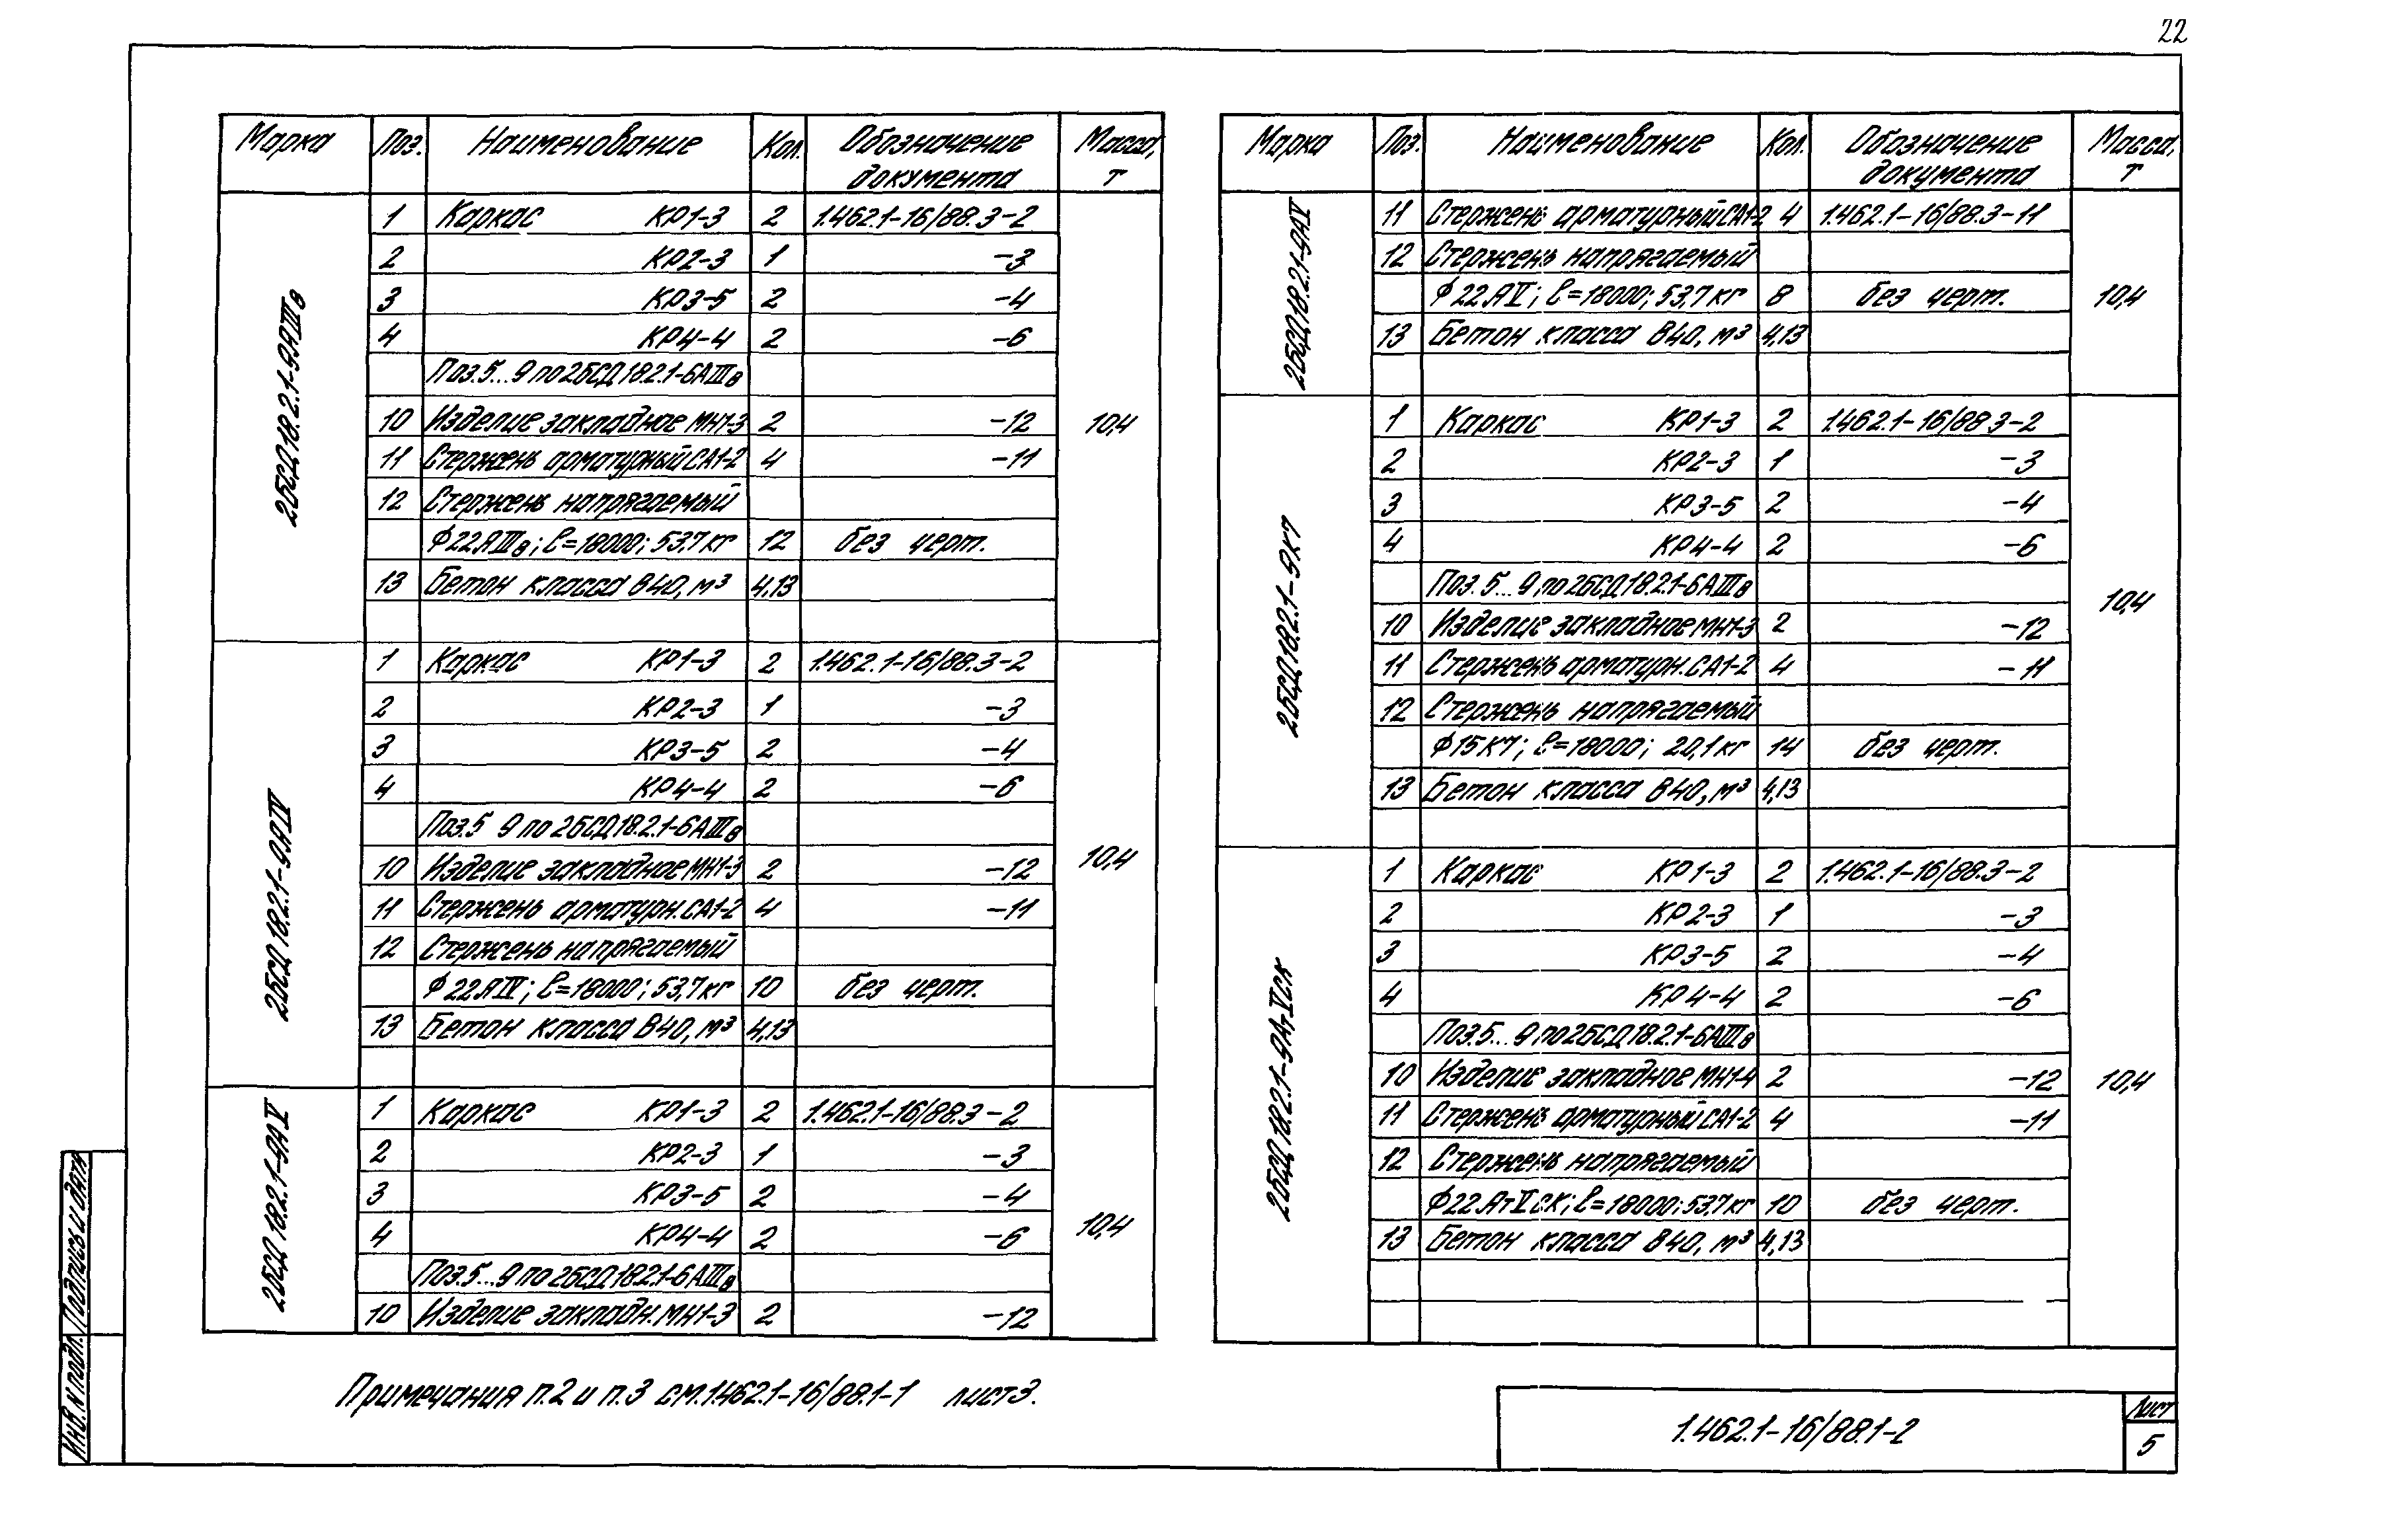 22
Марка Поз. Наименование Кол. Обозначение документа Масса, т
2БСД18.2.1-9АIIIв
1 Каркас КР1-3 2 1.462.1-16/88.3-2
2 КР2-3 1 -3
3 КР3-5 2 -4
4 КР4-4 2 -6
Поз.5...9 по 2БСД18.2.1-6АIIIв
10 Изделие закладное МН1-3 2 -12 10,4
11 Стержень арматурный СА1-2 4 -11
12 Стержень напрягаемый
ф22АIIIв; ℓ=18000; 53,7кг 12 без черт.
13 Бетон класса В40, м³ 4,13
2БСД18.2.1-9АIV
1 Каркас КР1-3 2 1.462.1-16/88.3-2
2 КР2-3 1 -3
3 КР3-5 2 -4
4 КР4-4 2 -6
Поз.5 9 по 2БСД18.2.1-6АIIIв
10 Изделие закладное МН1-3 2 -12 10,4
11 Стержень арматурн. СА1-2 4 -11
12 Стержень напрягаемый
ф22АIV; ℓ=18000; 53,7кг 10 без черт.
13 Бетон класса В40, м³ 4,13
2БСД18.2.1-9АV
1 Каркас КР1-3 2 1.462.1-16/88.3-2
2 КР2-3 1 -3
3 КР3-5 2 -4
4 КР4-4 2 -6 10,4
Поз.5...9 по 2БСД18.2.1-6АIIIв
10 Изделие закладн. МН1-3 2 -12
Марка Поз. Наименование Кол. Обозначение документа Масса, т
2БСД18.2.1-9АV
11 Стержень арматурный СА1-2 4 1.462.1-16/88.3-11
12 Стержень напрягаемый
ф22АV; ℓ=18000; 53,7кг 8 без черт. 10,4
13 Бетон класса В40, м³ 4,13
2БСД18.2.1-9К7
1 Каркас КР1-3 2 1.462.1-16/88.3-2
2 КР2-3 1 -3
3 КР3-5 2 -4
4 КР4-4 2 -6
Поз.5...9 по 2БСД18.2.1-6АIIIв 10,4
10 Изделие закладное МН1-3 2 -12
11 Стержень арматурн. СА1-2 4 -11
12 Стержень напрягаемый
ф15К7; ℓ=18000; 20,1кг 14 без черт.
13 Бетон класса В40, м³ 4,13
2БСД18.2.1-9АтVСК
1 Каркас КР1-3 2 1.462.1-16/88.3-2
2 КР2-3 1 -3
3 КР3-5 2 -4
4 КР4-4 2 -6
Поз.5...9 по 2БСД18.2.1-6АIIIв
10 Изделие закладное МН1-4 2 -12 10,4
11 Стержень арматурный СА1-2 4 -11
12 Стержень напрягаемый
ф22АтVСК; ℓ=18000; 53,7кг 10 без черт.
13 Бетон класса В40, м³ 4,13
Примечания п.2 и п.3 см.1.462.1-16/88.1-1 лист 3.
1.462.1-16/88.1-2
Лист
5
Инв. N подл. Подпись и дата